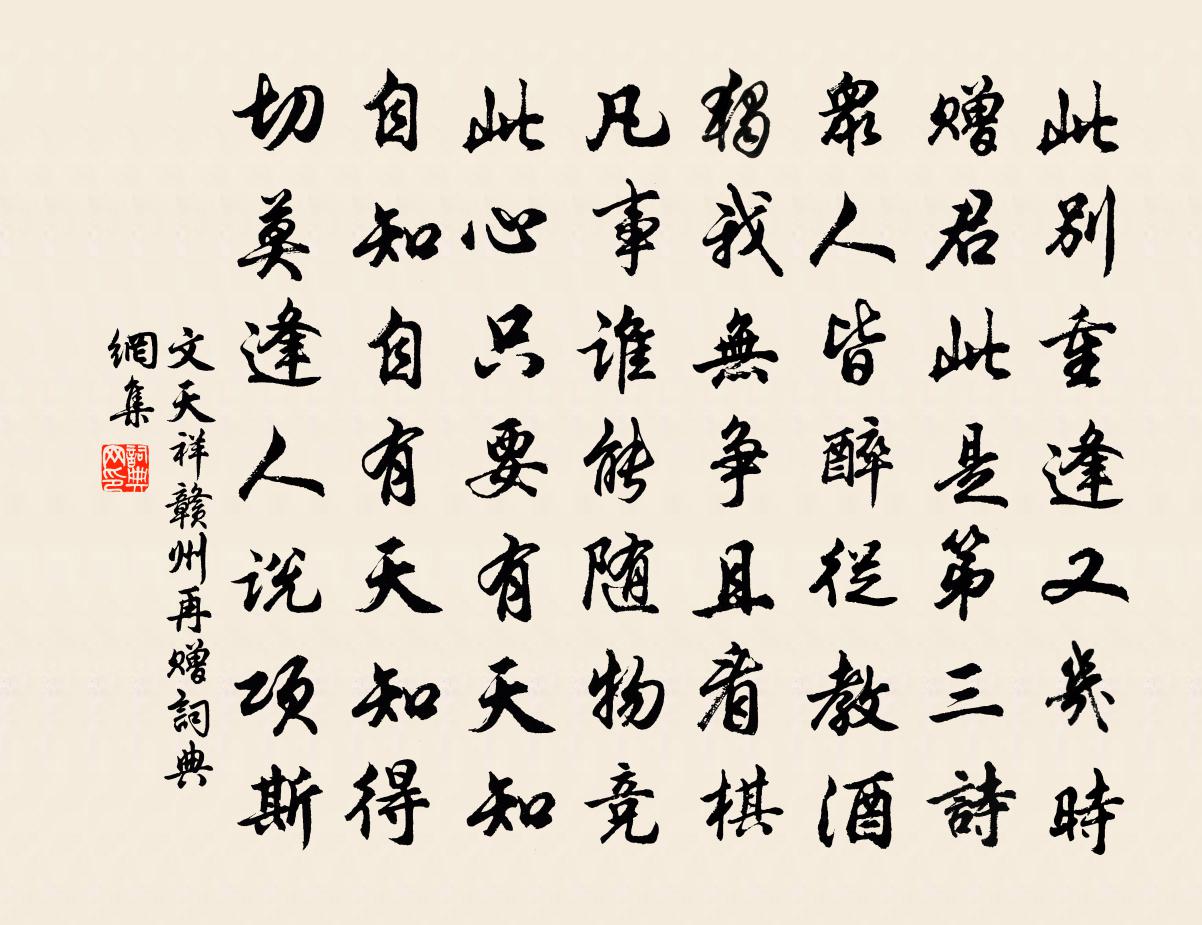 此别重逢又幾時
赠君此是第三詩
眾人皆醉從教酒
獨我無争且看棋
凡事谁能随物竞
此心只要有天知
自知自有天知得
切莫逢人说项斯
文天祥赣州再赠詞典
網集
詞典
网印